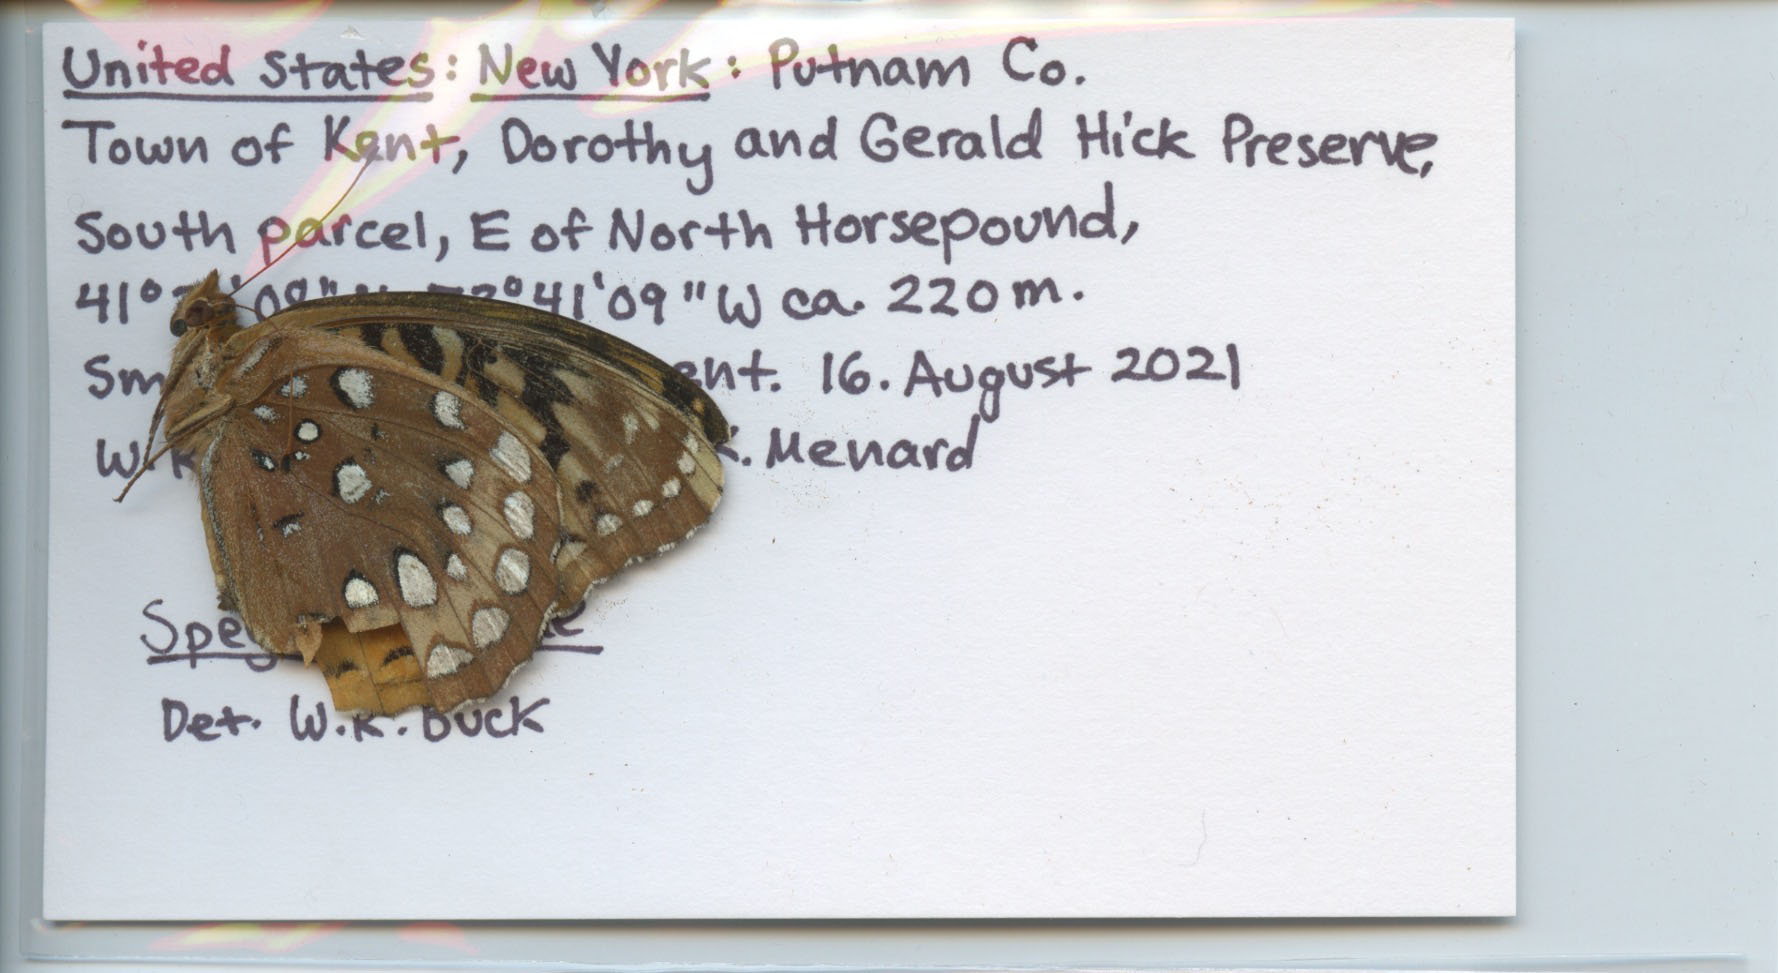 United States: New York: Putnam Co.
Town of Kent, Dorothy and Gerald Hick Preserve,
South parcel, E of North Horsepound,
41° 41'09"W ca. 220m.
16. August 2021
W. K. Menard
Det. W.K. Buck